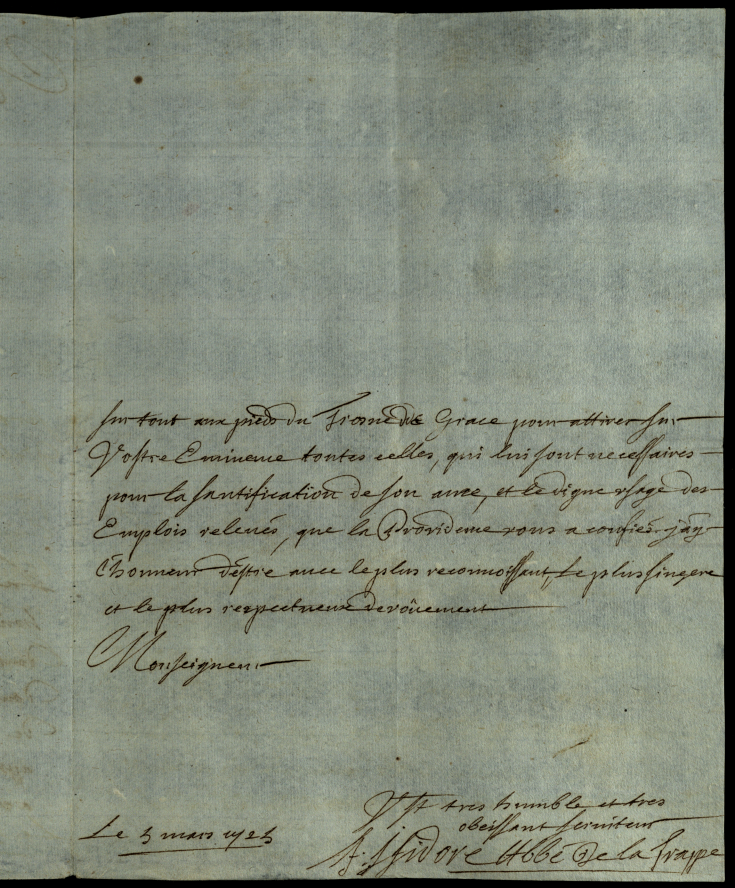 sur tout aux pieds du Trosne de Grace pour attirer sur
Vostre Eminence toutes celles, qui lui sont necessaires
pour la santification de son ame, et le digne usage des
Emplois relevés, que la Providence vous a confiés. j'ay
l'honneur d'éstre avec le plus reconnoissant, le plus sincere
et le plus respectueux devoüement
Monseigneur
Vst tres humble et tres
obeissant serviteur
Le 5 mars 1725
f. Isidore Abbé de la Trappe